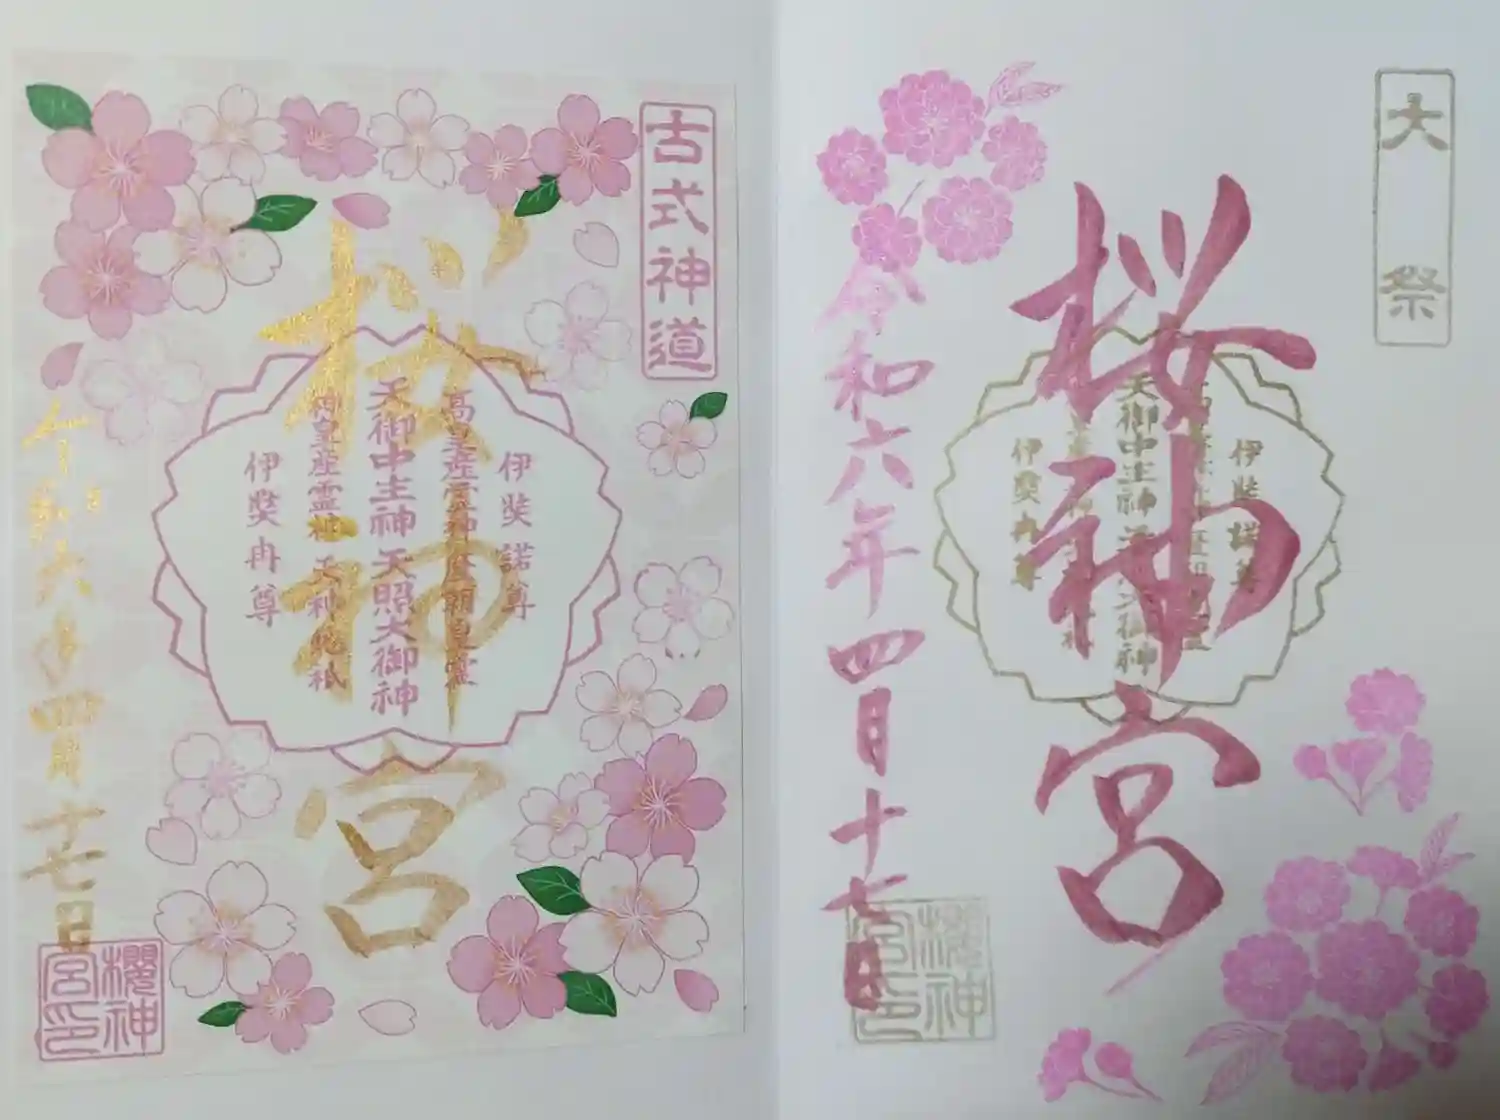 大祭
桜神宮
伊奘諾尊
天御中主神 天照大御神
伊奘冉尊
令和六年四月十七日
櫻神宮印
古式神道
桜神宮
伊奘諾尊
高皇産霊神歴朝皇霊
天御中主神 天照大御神
神皇産霊神 天神地祇
伊奘冉尊
令和六年四月十七日
櫻神宮印